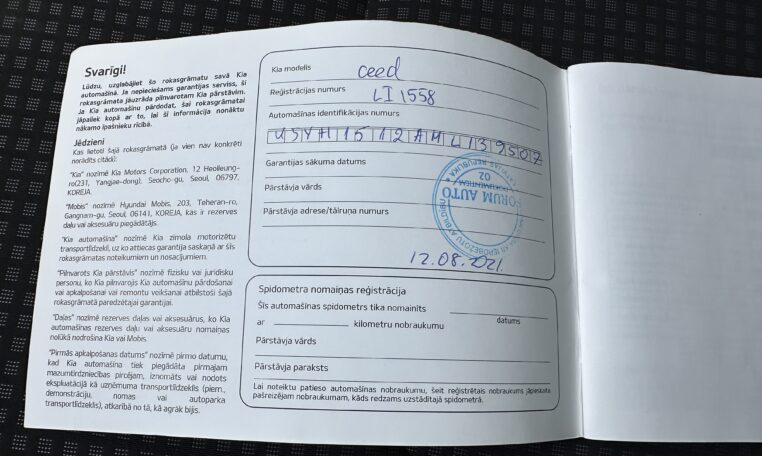 Svarīgi!
Lūdzu, uzglabājiet šo rokasgrāmatu savā Kia
automašīnā. Ja nepieciešams garantijas serviss, šī
rokasgrāmata jāuzrāda pilnvarotam Kia pārstāvim.
Ja Kia automašīnu pārdodat, šai rokasgrāmatai
jāpaliek kopā ar to, lai šī informācija nonāktu
nākamo īpašnieku rīcībā.
Jēdzieni
Kas lietoti šajā rokasgrāmatā (ja vien nav konkrēti
norādīts citādi):
"Kia" nozīmē Kia Motors Corporation, 12 Heolleung-
ro(231, Yangjae-dong), Seocho-gu, Seoul, 06797,
KOREJA.
"Mobis" nozīmē Hyundai Mobis, 203, Teheran-ro,
Gangnam-gu, Seoul, 06141, KOREJA, kas ir rezerves
daļu vai aksesuāru piegādātājs.
"Kia automašīna" nozīmē Kia zīmola motorizētu
transportlīdzekli, uz ko attiecas garantija saskaņā ar šīs
rokasgrāmatas noteikumiem un nosacījumiem.
"Pilnvarots Kia pārstāvis" nozīmē fizisku vai juridisku
personu, ko Kia pilnvarojis Kia automašīnu pārdošanai
vai apkalpošanai vai remontu veikšanai atbilstoši šajā
rokasgrāmatā paredzētajai garantijai.
"Daļas" nozīmē rezerves daļas vai aksesuārus, ko Kia
automašīnas rezerves daļu vai aksesuāru nomaiņas
nolūkā nodrošina Kia vai Mobis.
"Pirmās apkalpošanas datums" nozīmē pirmo datumu,
kad Kia automašīna tiek piegādāta pirmajam
mazumtirdzniecības pircējam, iznomāts vai nodots
ekspluatācijā kā uzņēmuma transportlīdzeklis (piem.,
demonstrāciju, nomas vai autoparka
transportlīdzeklis), atkarībā no tā, kā agrāk bijis.
Kia modelis ceed
Reģistrācijas numurs LI 1558
Automašīnas identifikācijas numurs
U5YH1512AML139507
Garantijas sākuma datums
Pārstāvja vārds
Pārstāvja adrese/tālruņa numurs
LATVIJAS REPUBLIKA
02
DOKUMENTIEM
FORUM AUTO
12.08.2021.
Spidometra nomaiņas reģistrācija
Šīs automašīnas spidometrs tika nomainīts
datums
ar kilometru nobraukumu
Pārstāvja vārds
Pārstāvja paraksts
Lai noteiktu patieso automašīnas nobraukumu, šeit reģistrētais nobraukums jāpieskaita
pašreizējam nobraukumam, kāds redzams uzstādītajā spidometrā.